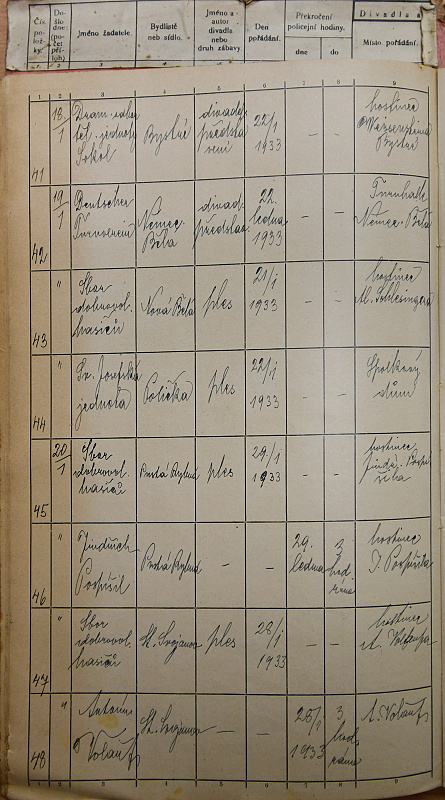 Čís. po- ložky.
Do- šlo dne: (po- čet pří- loh)
Jméno žadatele.
Bydliště neb sídlo.
Jméno a autor divadla nebo druh zábavy
Den pořádání.
Překročení policejní hodiny.
dne
do
Divadla a
Místo pořádání.
1 2 3 4 5 6 7 8 9
41
18/1
Dram. odbor
těl. jednoty
Sokol
Bystré
divadel.
předsta
vení
22/1
1933
–
–
hostinec
Bystré
42
19/1
Deutscher
Turnverein
Němec.
Bělá
divad.
představ.
22.
ledna
1933
–
–
Turnhalle
Němec. Bělá
43
"
Sbor
dobrovol.
hasičů
Nová Bělá
ples
21/1
1933
–
–
hostinec
Schlesingera
44
"
Sv. Josefská
jednota
Polička
ples
22/1
1933
–
–
Spolkový
dům
45
20/1
Sbor
dobrovol.
hasičů
Pustá Rybná
ples
29/1
1933
–
–
hostinec
Jindř. Pospí
šila
46
"
Jindřich
Pospíšil
Pustá Rybná
–
–
29.
ledna
3
hod.
ráno
hostinec
J. Pospíšila
47
"
Sbor
dobrovol.
hasičů
St. Svojanov
ples
28/1
1933
–
–
hostinec
A. Volaufa
48
"
Antonín
Volauf
St. Svojanov
–
–
28/1
1933
3
hod.
ráno
A. Volauf